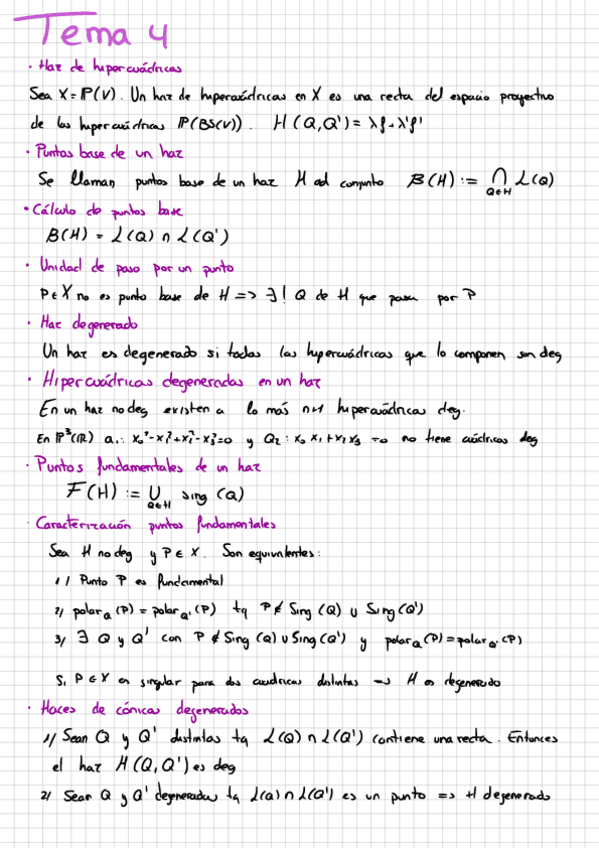 Tema 4
· Haz de hipercuádricas
Sea X = P(V). Un haz de hipercuádricas en X es una recta del espacio proyectivo
de las hipercuádricas P(BS(V)). H(Q,Q') = λf + λ'f'
· Puntos base de un haz
Se llaman puntos base de un haz H al conjunto B(H) := ∩ Q∈H L(Q)
· Cálculo de puntos base
B(H) = L(Q) ∩ L(Q')
· Unidad de paso por un punto
P∈X no es punto base de H => ∃! Q de H que pasa por P
· Haz degenerado
Un haz es degenerado si todas las hipercuádricas que lo componen son deg
· Hipercuádricas degeneradas en un haz
En un haz no deg existen a lo más n+1 hipercuádricas deg.
En P³(R) Q₁: x₀²-x₁²+x₂²-x₃²=0 y Q₂: x₀x₁+x₂x₃=0 no tiene cuádricas deg
· Puntos fundamentales de un haz
F(H) := ∪ Q∈H sing (Q)
· Caracterización puntos fundamentales
Sea H no deg y P∈X. Son equivalentes:
1) Punto P es fundamental
2) polar_Q(P) = polar_Q'(P) tq P∉Sing(Q) ∪ Sing(Q')
3) ∃ Q y Q' con P∉Sing(Q) ∪ Sing(Q') y polar_Q(P) = polar_Q'(P)
Si P∈X es singular para dos cuádricas distintas => H es degenerado
· Haces de cónicas degenerados
1) Sean Q y Q' distintas tq L(Q) ∩ L(Q') contiene una recta. Entonces
el haz H(Q,Q') es deg
2) Sean Q y Q' degeneradas tq L(Q) ∩ L(Q') es un punto => H degenerado